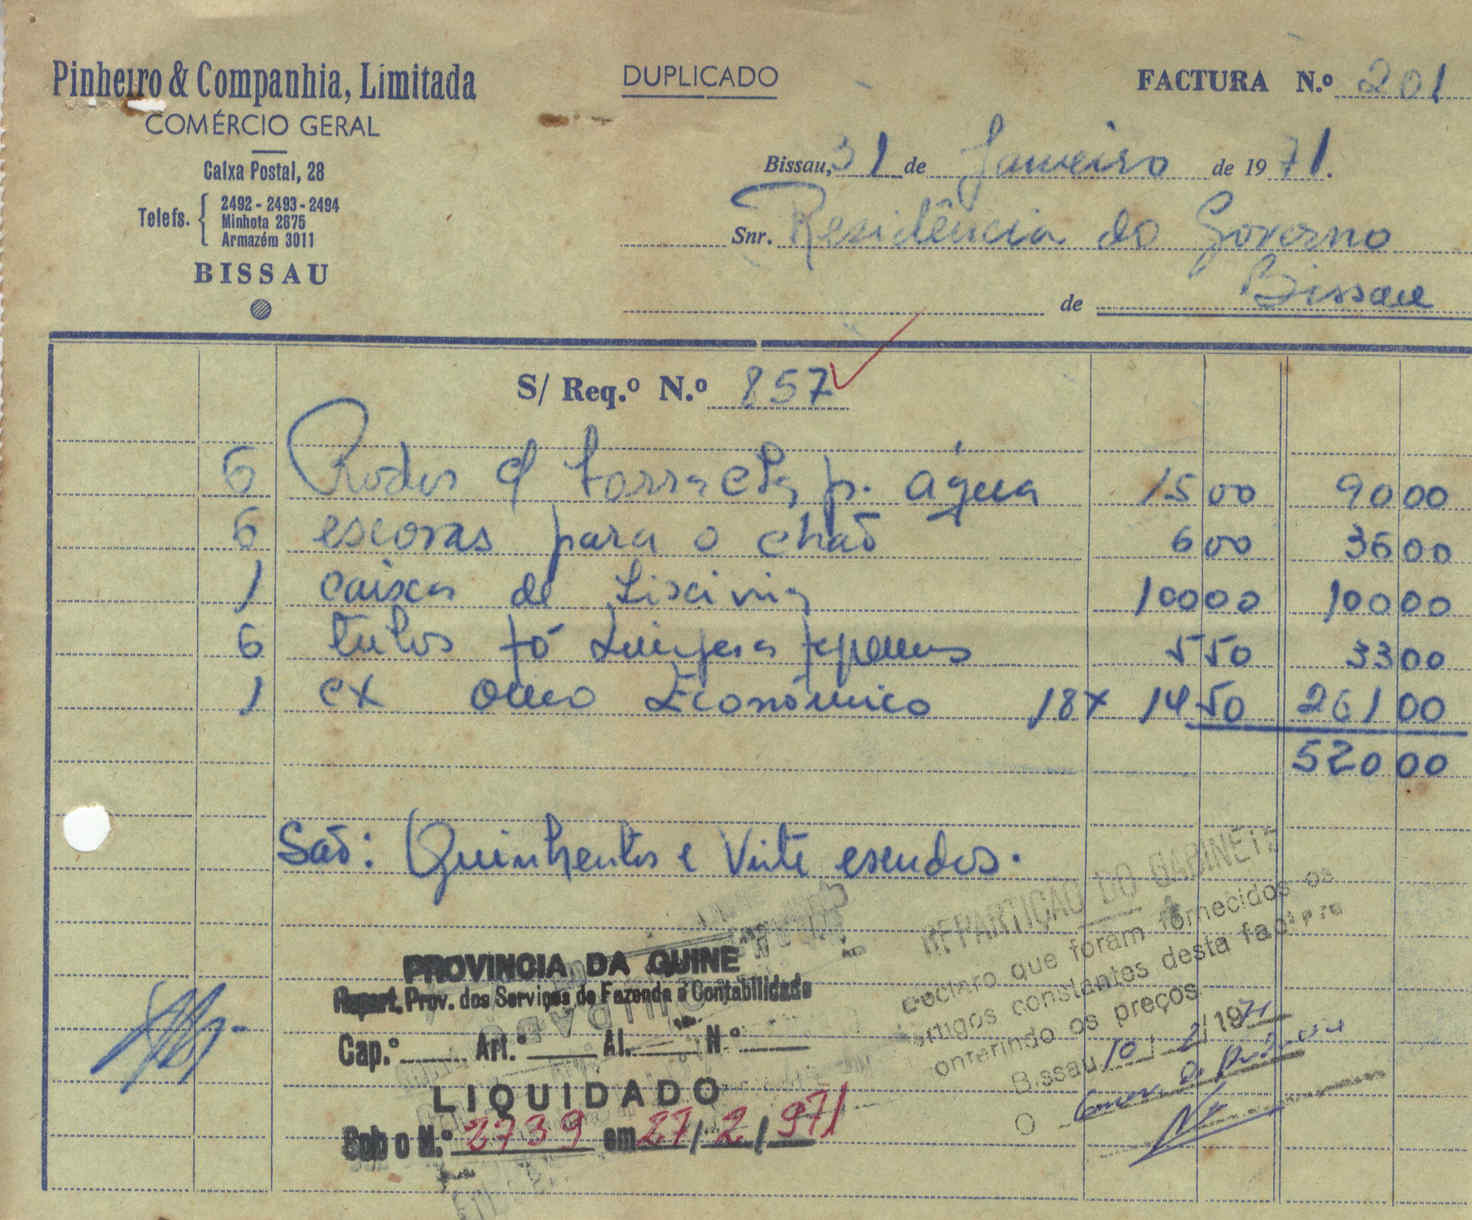 Pinheiro & Companhia, Limitada
COMÉRCIO GERAL
Caixa Postal, 28
Telefs. 2492 - 2493 - 2494
Minhota 2675
Armazém 3011
BISSAU
DUPLICADO
FACTURA N.º 201
Bissau, 31 de Janeiro de 1971.
Snr. Residência do Governo
de Bissau
S/ Req.º N.º 857
6 Rodos c/ borracha p. água 15 00 90 00
6 escovas para o chão 6 00 36 00
1 caixa de Lixivia 100 00 100 00
6 tubos pó Limpesa pequenos 5 50 33 00
1 cx omo Económico 18x 14 50 261 00
520 00
São: Quinhentos e Vinte escudos.
PROVINCIA DA GUINE
Repart. Prov. dos Serviços de Fazenda e Contabilidade
Cap.º Art.º Al. N.º
LIQUIDADO
Sob o N.º 2739 em 27/2/971
REPARTIÇÃO DO GABINETE
Declaro que foram fornecidos os
artigos constantes desta factura
conferindo os preços
Bissau 10/2/1971
O